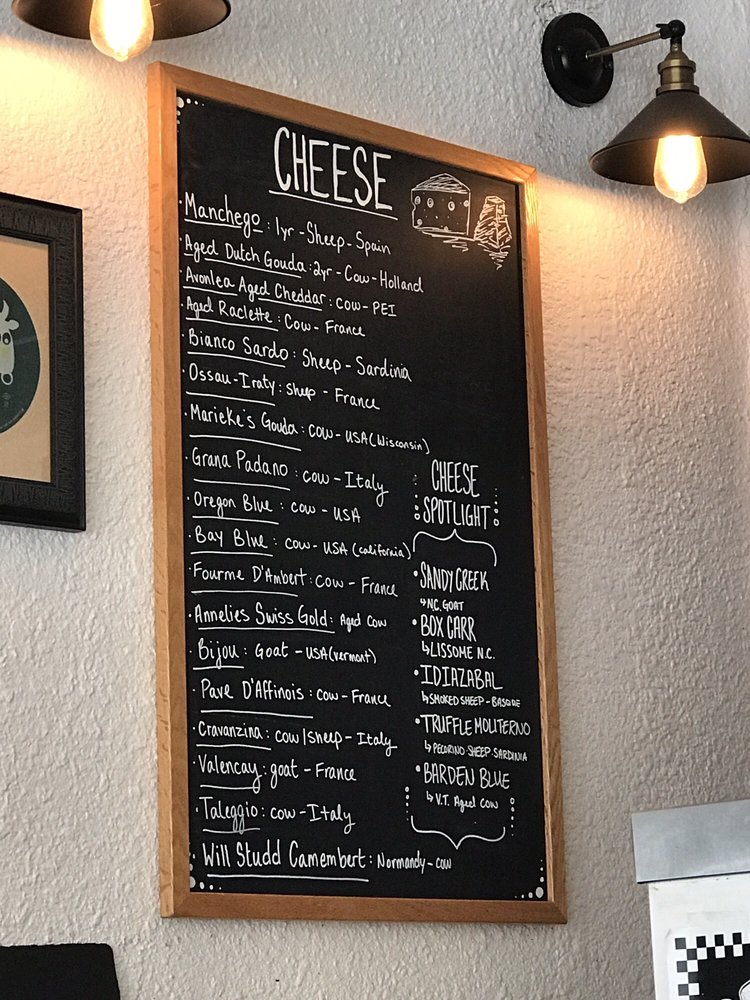 CHEESE
· Manchego : 1yr - Sheep - Spain
· Aged Dutch Gouda : 2yr - Cow - Holland
· Avonlea Aged Cheddar : cow - PEI
· Aged Raclette : Cow - France
· Bianco Sardo : Sheep - Sardinia
· Ossau-Iraty : sheep - France
· Marieke's Gouda : cow - USA (Wisconsin)
· Grana Padano : cow - Italy
· Oregon Blue : cow - USA
· Bay Blue : cow - USA (california)
· Fourme D'Ambert : cow - France
· Annelies Swiss Gold : Aged Cow
· Bijou : Goat - USA (vermont)
· Pave D'Affinois : cow - France
· Cravanzina : cow/sheep - Italy
· Valencay : goat - France
· Taleggio : cow - Italy
· Will Studd Camembert : Normandy - cow
CHEESE
SPOTLIGHT
• SANDY CREEK
↳ N.C. GOAT
• BOX CARR
↳ LISSOME N.C.
• IDIAZABAL
↳ SMOKED SHEEP - BASQUE
• TRUFFLE MOLITERNO
↳ PECORINO - SHEEP. SARDINIA
• BARDEN BLUE
↳ V.T. Aged cow